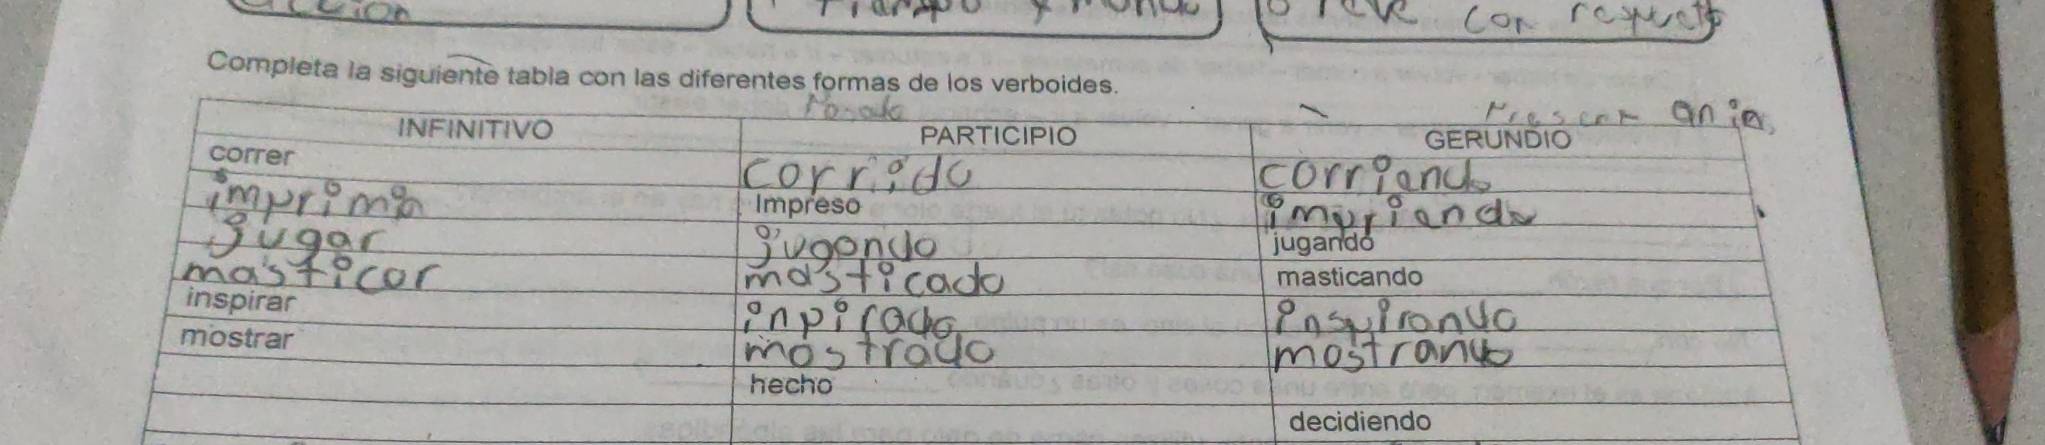 accion
tiempo y mundo
con respeto
Completa la siguiente tabla con las diferentes formas de los verboides.
INFINITIVO PARTICIPIO GERUNDIO
correr corrido corriendo
imprimir Impreso impriendo
jugar jugondo jugando
masticar masticado masticando
inspirar inpirado inspirando
mostrar mostrado mostrando
hecho
decidiendo